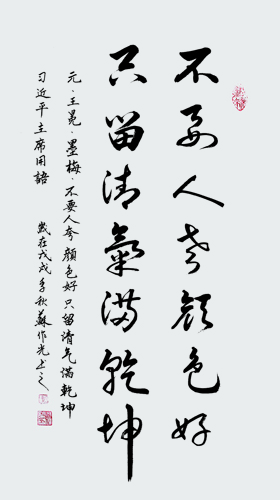 不要人夸颜色好
只留清氣满乾坤
元·王冕·墨梅·不要人夸颜色好只留清气满乾坤
习近平主席用語
歲在戊戌季秋蘇作光书之